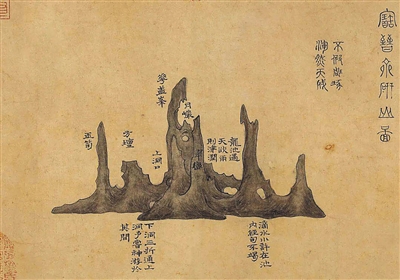 寶晉齋研山圖
不假雕琢
渾然天成
龍池遇
天欲雨
則津潤
滴水小許在池
內經旬不竭
月巖
華蓋峯
翠巒
上洞口
方壇
下洞三折通上
洞予嘗神遊於
其間